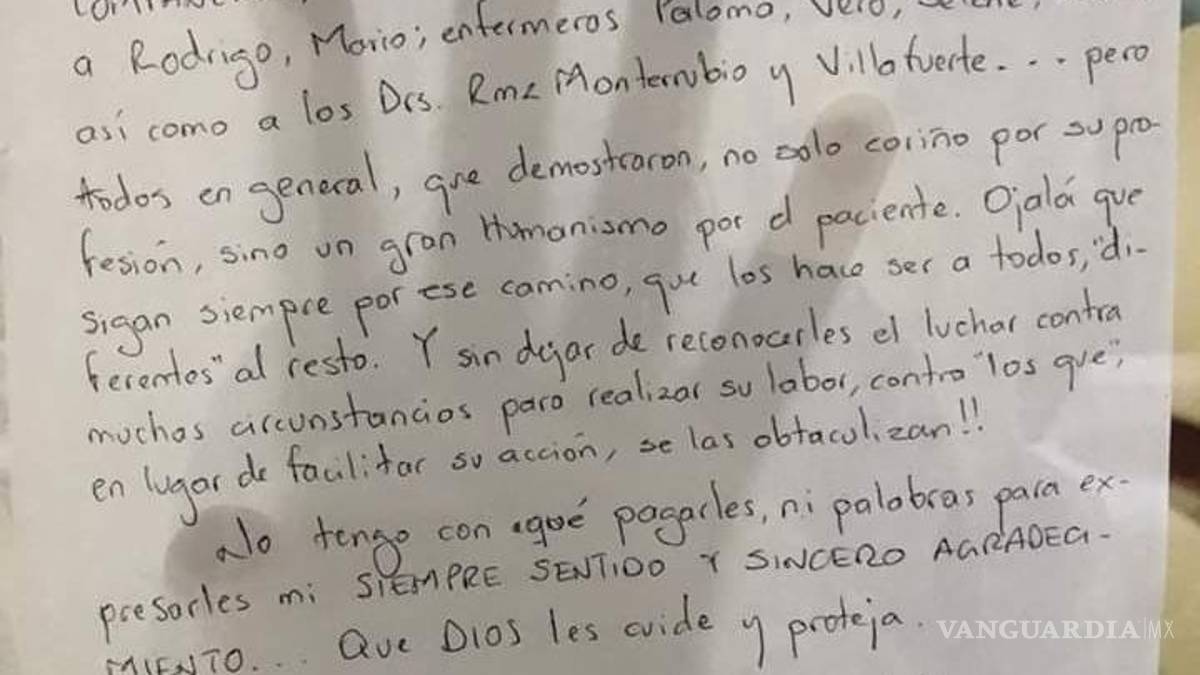 a Rodrigo, Mario; enfermeros Paloma, Vero,
así como a los Drs. Rmz Monterrubio y Villafuerte... pero
todos en general, que demostraron, no solo cariño por su pro-
fesión, sino un gran Humanismo por el paciente. Ojalá que
sigan siempre por ese camino, que los hace ser a todos, "di-
ferentes" al resto. Y sin dejar de reconocerles el luchar contra
muchas circunstancias para realizar su labor, contra "los que",
en lugar de facilitar su acción, se las obtaculizan!!
No tengo con qué pagarles, ni palabras para ex-
presarles mi SIEMPRE SENTIDO Y SINCERO AGRADECI-
MIENTO... Que DIOS les cuide y proteja.
VANGUARDIA|MX